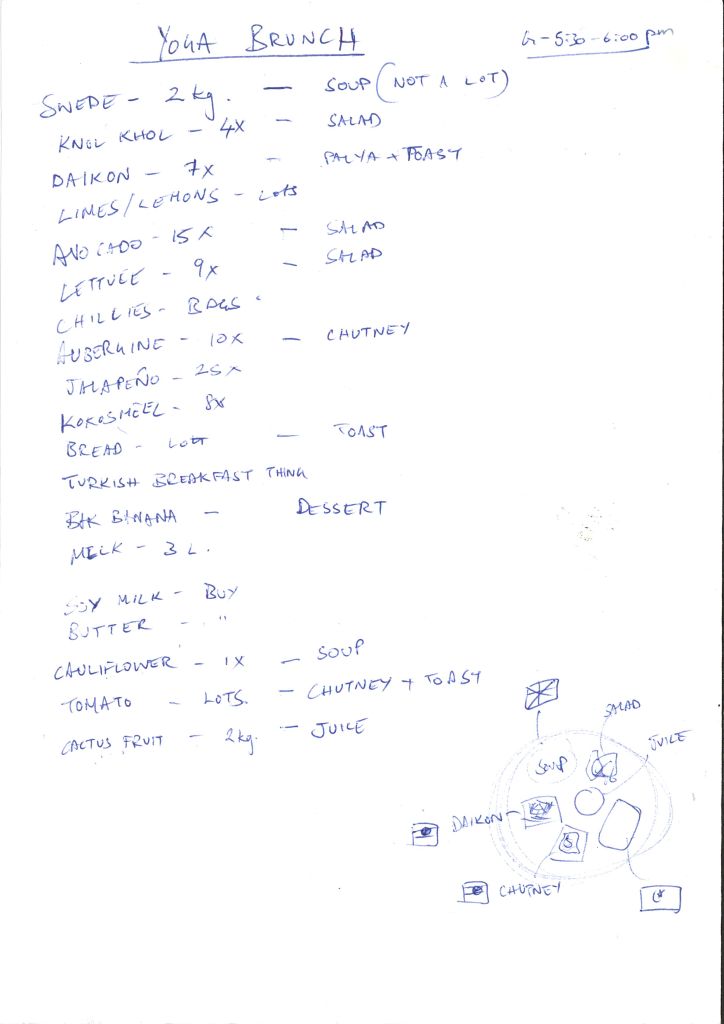 YOGA BRUNCH
G - 5:30 - 6:00 pm
SWEDE - 2 kg. — SOUP (NOT A LOT)
KNOL KHOL - 4X - SALAD
DAIKON - 7x - PALYA + TOAST
LIMES/LEMONS - LOTS
AVOCADO - 15 X - SALAD
LETTUCE - 9x - SALAD
CHILLIES - BAGS
AUBERGINE - 10X — CHUTNEY
JALAPEÑO - 25 X
KOKOSMEEL - 8X
BREAD - LOTT — TOAST
TURKISH BREAKFAST THING
BANANA — DESSERT
MILK - 3 L.
SOY MILK - BUY
BUTTER - "
CAULIFLOWER - 1X - SOUP
TOMATO - LOTS. - CHUTNEY + TOAST
CACTUS FRUIT - 2kg. - JUICE
SALAD
JUICE
SOUP
DAIKON
CHUTNEY